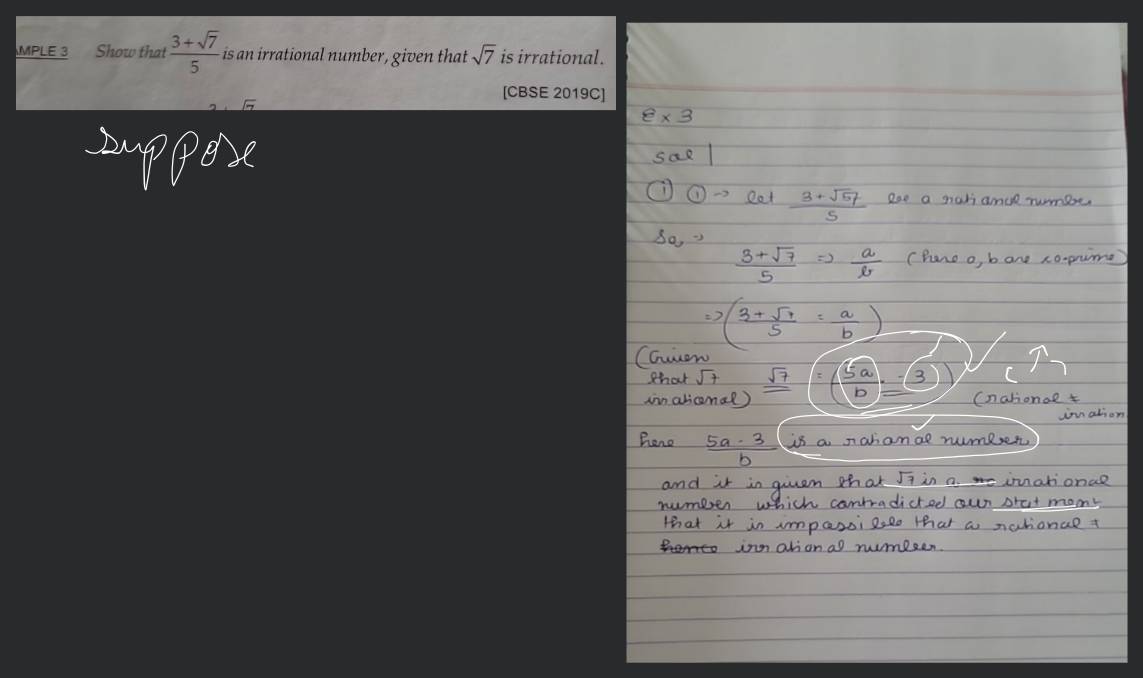 AMPLE 3 Show that (3+√7)/5 is an irrational number, given that √7 is irrational.
[CBSE 2019C]
suppose
Ex 3
sol
① ① → let (3+√57)/5 be a rational number
So, →
(3+√7)/5 => a/b (here a, b are co-prime)
=> ((3+√7)/5 = a/b)
(Given
that √7 √7 = (5a/b - 3)
irrational) (rational ≠
irration
here (5a - 3)/b is a rational number
and it is given that √7 is a irrational
number which contradicted our stat ment
that it is impossible that a rational ≠
hence irrational number.